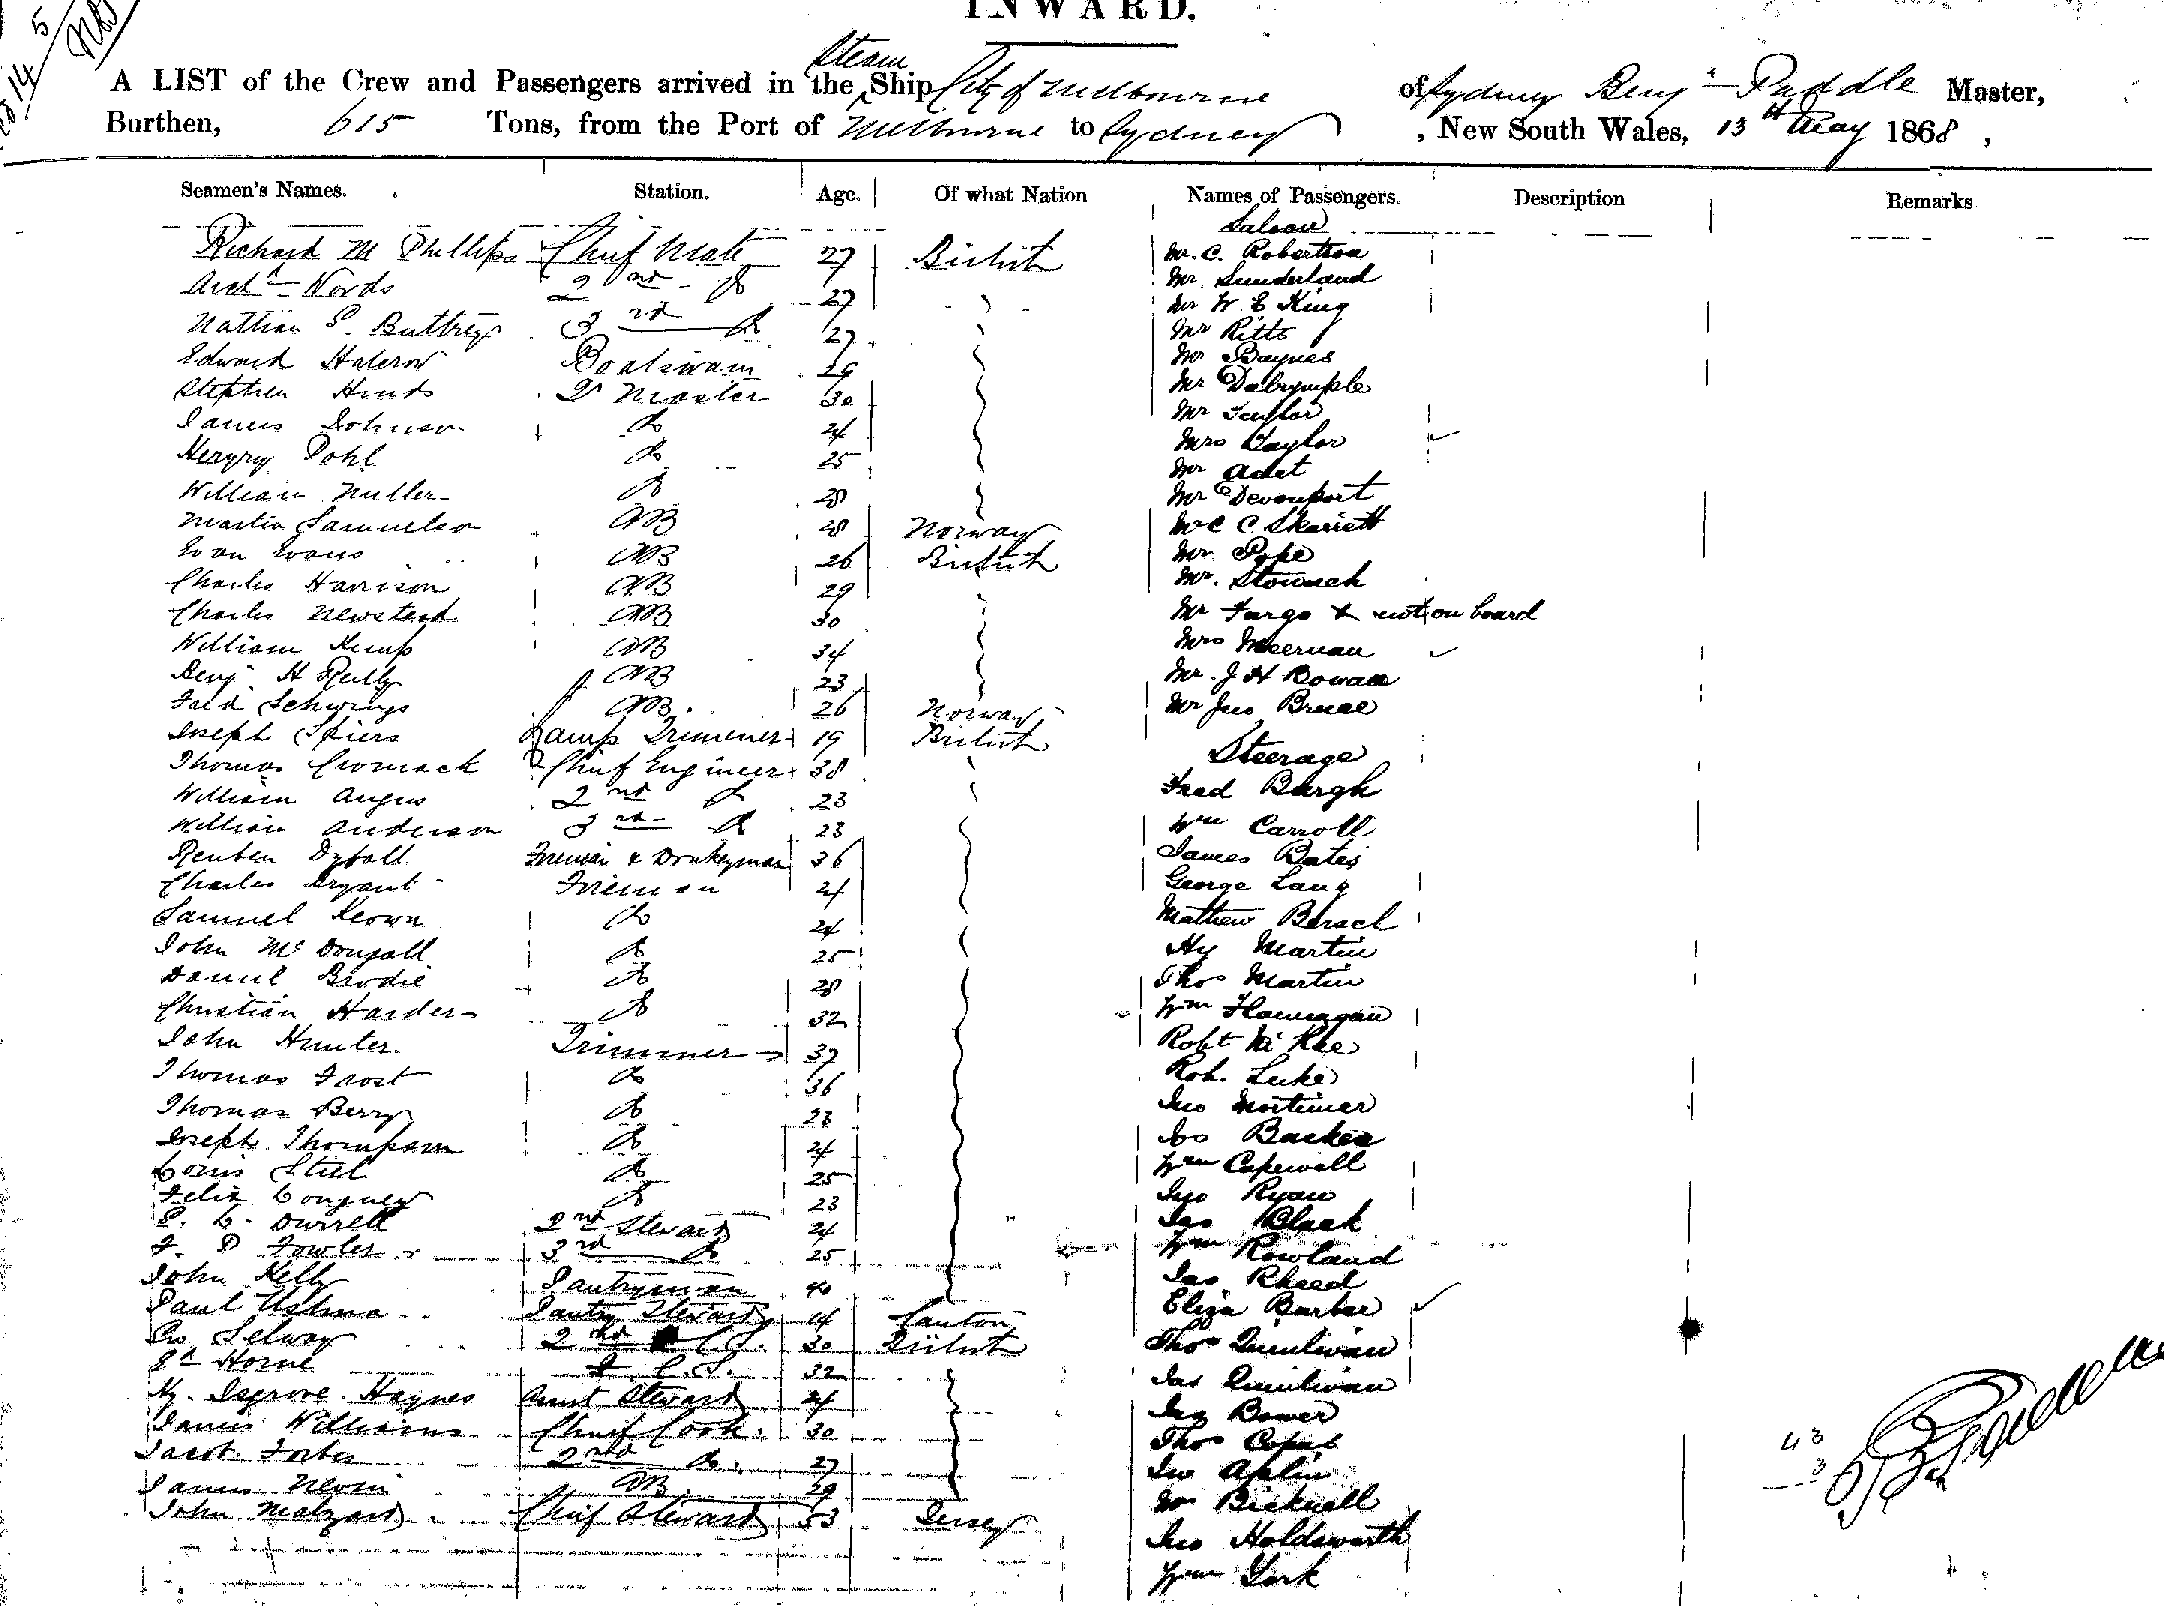 INWARD.
A LIST of the Crew and Passengers arrived in the Steam Ship City of Melbourne of Sydney Benjn Paddle Master,
Burthen, 615 Tons, from the Port of Melbourne to Sydney, New South Wales, 13th May 1868,
Seamen's Names. Station. Age. Of what Nation Names of Passengers. Description Remarks
Saloon
Richard M Phillips Chief Mate 27 British Mr. C. Robertson
Archd Words 2nd Do 27 Mr Sunderland
Nathan S. Buttrey 3rd Do 27 Mr W E King
Edward Halcrow Boatswain 29 Mr Pitts
Stephen Hinds Qr Master 30 Mr Baynes
James Johnson Do 24 Mr Dalrymple
Henyry Pohl Do 25 Mr Taylor
William Miller Do 28 Mrs Taylor
Martin Samuelson AB 28 Norway Mr Adet
Evan Evans AB 26 British Mr Devonport
Charles Harrison AB 29 Mr C C Skarratt
Charles Newstead AB 30 Mr Pope
William Kemp AB 34 Mr.
Benj H Reilly AB 23 Mr Fargo x not on board
Fred Schwings AB 26 Norway Mrs Meernan
Joseph Spiers Lamp Trimmer 19 British Mr. J H Bowan
Thomas Cromack Chief Engineer 38 Mr Jno Bruce
Steerage
William Angus 2nd Do 23 Fred Burgh
William Anderson 3rd Do 23 Wm Carroll
Reuben Dyball Fireman & Donkeyman 36 James Bates
Charles Bryant Fireman 24 George Lang
Samuel Keown Do 24 Mathew
John McDougall Do 25 Hy Martin
Daniel Brodie Do 28 Thos Martin
Christian Harder Do 32 Wm Flannagan
John Hunter Trimmer 37 Robt McKee
Thomas Frost Do 36 Rob. Luke
Thomas Berry Do 23 Jno Mortimer
Joseph Thompson Do 24 Jos Barker
Louis Stiel Do 25 Wm Capewell
Felix Do 23 Jno Ryan
E. L. Durrell 2nd Steward 24 Jas Black
F. P Fowler 3rd Do 25 Wm Rowland
John Kelly Pantryman 40 Jas Rheed
Paul Pantry Steward 14 Canton Eliza Barber
Selway 2nd C.S. 30 British Thos Quinlivan
Horne F. C.S. 32 Jas Quinlivan
H. Isgrove Haynes Asst Steward 24 Bower
James Williams Chief Cook 30 Thos
Jacob Forbes 2nd Do 27 Jno Aplin
James Nevin AB 29 Mr Bicknell
John Malzard Chief Steward 53 Jersey Jno Holdsworth
Wm York
43
3
B Paddle